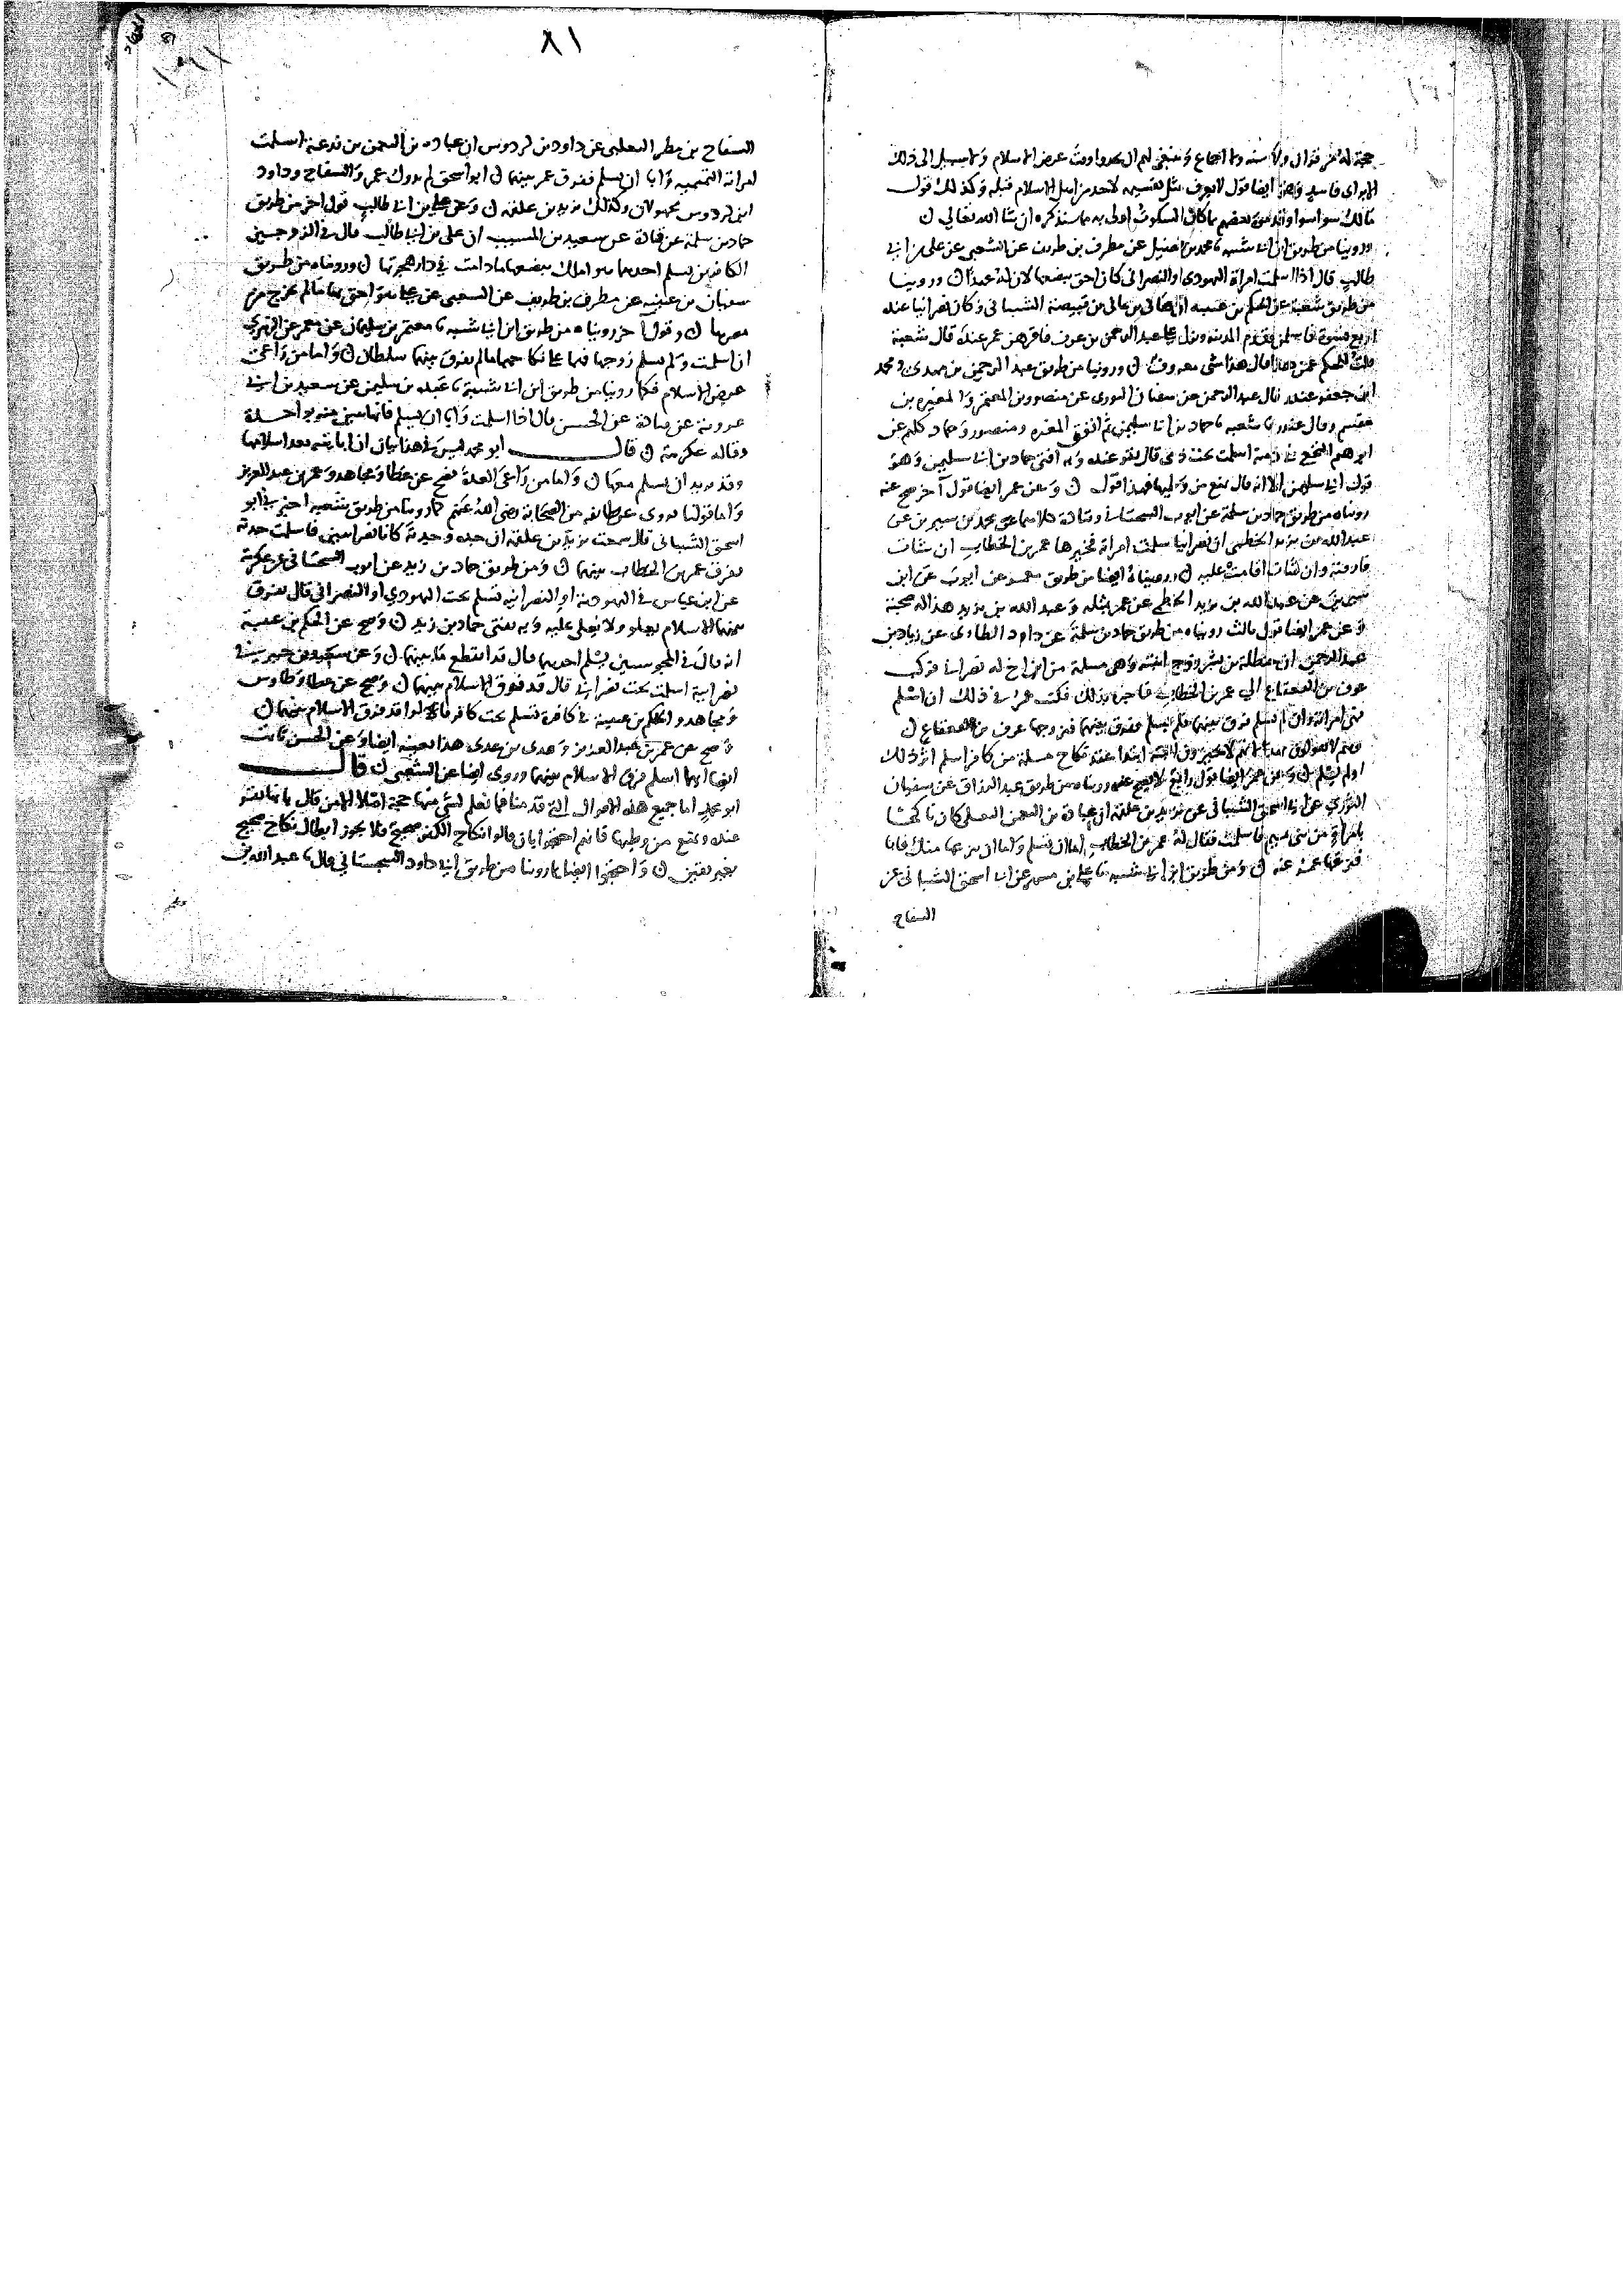 حجة له من قران ولا سنة ولا اجماع ولا ينبغي لهم ان عرض الاسلام ولا سبيل الى ذلك
الا براي فاسد وهو ايضا قول لا يعرف مثل تقسيمه لاحد من اهل الاسلام قبله وكذلك قول
مالك سوا سوا بعضهم ما كان السكوت اولى به مما سنذكره ان شا الله تعالى ن
وروينا من طريق ابن ابي شيبه نا محمد بن فضيل عن مطرف بن طريف عن الشعبي عن علي بن ابي
طالب قال اذا اسلمت امراة اليهودي او النصراني كان احق ببضعها لان له عهدا ن وروينا
من طريق شعبة عن الحكم بن عتيبه ان هاني بن هاني بن قبيصة الشيباني وكان نصرانيا عنده
اربع نسوة فاسلمن فقدم المدينه ونزل على عبد الرحمن بن عوف فاقرهن عمر عنده قال شعبة
قلت للحكم عمن هذا قال هذا شي معروف ن وروينا من طريق عبد الرحمن بن مهدي ومحمد
ابن جعفر غندر قال عبد الرحمن عن سفيان الثوري عن منصور بن المعتمر والمغيره بن
مقسم وقال غندر نا شعبه نا حماد بن ابي سليمن ثم اتفق المغيره ومنصور وحماد كلهم عن
ابرهيم النخعي في ذمية اسلمت تحت ذمي قال تقر عنده وبه افتى حماد بن ابي سليمن وهو
قول ابي سليمن الا انه قال يمنع من وطيها فهذا قول ن وعن عمر ايضا قول آخر صح عنه
رويناه من طريق حماد بن سلمة عن ايوب السختياني وقتادة كلاهما عن محمد بن سيرين عن
عبد الله بن يزيد الخطمي ان نصرانيا اسلمت امراته فخيرها عمر بن الخطاب ان شات
فارقته وان شات اقامت عليه ن ورويناه ايضا من طريق معمر عن ايوب عن ابن
سيرين عن عبد الله بن يزيد الخطمي عن عمر مثله وعبد الله بن يزيد هذا له صحبة
وعن عمر ايضا قول ثالث رويناه من طريق حماد بن سلمة عن داود الطاوي عن زياد بن
عبد الرحمن ان حنظلة بن بشر زوج ابنته وهي مسلمة من ابن اخ له نصراني فركب
عوف بن القعقاع الى عمر بن الخطاب فاخبره بذلك فكتب عمر في ذلك ان اسلم
فهي امراته وان لم يسلم فرق بينهما فلم يسلم ففرق بينهما فتزوجها عوف بن القعقاع ن
لا يجيزون البتة ابتدا عقد نكاح مسلمة من كافر اسلم اثر ذلك
او لم يسلم ن وعن عمر ايضا قول رابع لا يصح عنه رويناه من طريق عبد الرزاق عن سفيان
الثوري عن ابي اسحق الشيباني عن يزيد بن علقة ان عبادة بن النعمن التغلبي كان ناكحا
بامراة من بني تميم فاسلمت فقال له عمر بن الخطاب اما ان تسلم واما ان ننزعها منك فابا
فنزعها عمر عنه ن ومن طريق ابن ابي شيبه نا علي بن مسهر عن ابي اسحق الشيباني عن
السفاح
٨١
السفاح بن مطر التغلبي عن داود بن كردوس ان عباده بن النعمن بن زرعة اسلمت
امراته التميميه وابا ان يسلم ففرق عمر بينهما ن ابو اسحق لم يدرك عمر والسفاح وداود
ابن كردوس مجهولان وكذلك يزيد بن علقه ن وعن علي بن ابي طالب قول اخر من طريق
حماد بن سلمة عن قتادة عن سعيد بن المسيب ان علي بن ابي طالب قال في الزوجين
الكافرين يسلم احدهما هو املك ببضعها ما دامت في دار هجرتها ن ورويناه من طريق
سفيان بن عيينه عن مطرف بن طريف عن الشعبي عن علي هو احق بها ما لم تخرج من
مصرها ن وقول آخر رويناه من طريق ابن ابي شيبه نا معتمر بن سليمان عن معمر عن الزهري
ان اسلمت ولم يسلم زوجها فهما على نكاحهما ما لم يفرق بينهما سلطان ن واما من راعى
عرض الاسلام فكما روينا من طريق ابن ابي شيبة نا عبده بن سليمن عن سعيد بن ابي
عروبة عن قتادة عن الحسن قال اذا اسلمت وابا ان يسلم فانها تبين منه بواحدة
وقاله عكرمة ن قال ابو محمد ليس في هذا بيان ان ابايته بعد اسلامها
وقد يريد ان يسلم معها ن واما من راعى العدة فصح عن عطا ومجاهد وعمر بن عبد العزيز
واما قولنا فروي عن طايفه من الصحابة رضي الله عنهم كما روينا من طريق شعبه اخبرني ابو
اسحق الشيباني قال سمعت يزيد بن علقه ان جده وجدته كانا نصرانيين فاسلمت جدته
ففرق عمر بن الخطاب بينهما ن ومن طريق حماد بن زيد عن ايوب السختياني عن عكرمة
عن ابن عباس في اليهودية او النصرانيه تسلم تحت اليهودي او النصراني قال يفرق
بينهما الاسلام يعلو ولا يعلى عليه وبه يفتي حماد بن زيد ن وصح عن الحكم بن عتيبة
انه قال في المجوسيين يسلم احدهما قال قد انقطع ما بينهما ن وعن سعيد بن جبير في
نصرانية اسلمت تحت نصراني قال قد فرق الاسلام بينهما ن وصح عن عطا وطاوس
ومجاهد والحكم بن عتيبة في كافرة تسلم تحت كافر قالوا قد فرق الاسلام بينهما ن
وصح عن عمر بن عبد العزيز وعدي بن عدي هذا بعينه ايضا وعن الحسن ثابت
ايضا ايهما اسلم فرق الاسلام بينهما وروي ايضا عن الشعبي ن قال
ابو محمد اما جميع هذه الاقوال التي قدمنا فما نعلم لشي منها حجة اصلا الا من قال بانها تقر
عنده ويمنع من وطيها فانهم احتجوا بان قالوا نكاح الكفر صحيح فلا يجوز ابطال نكاح صحيح
بغير يقين ن واحتجوا ايضا بما روينا من طريق ابي داود السجستاني قال نا عبد الله بن